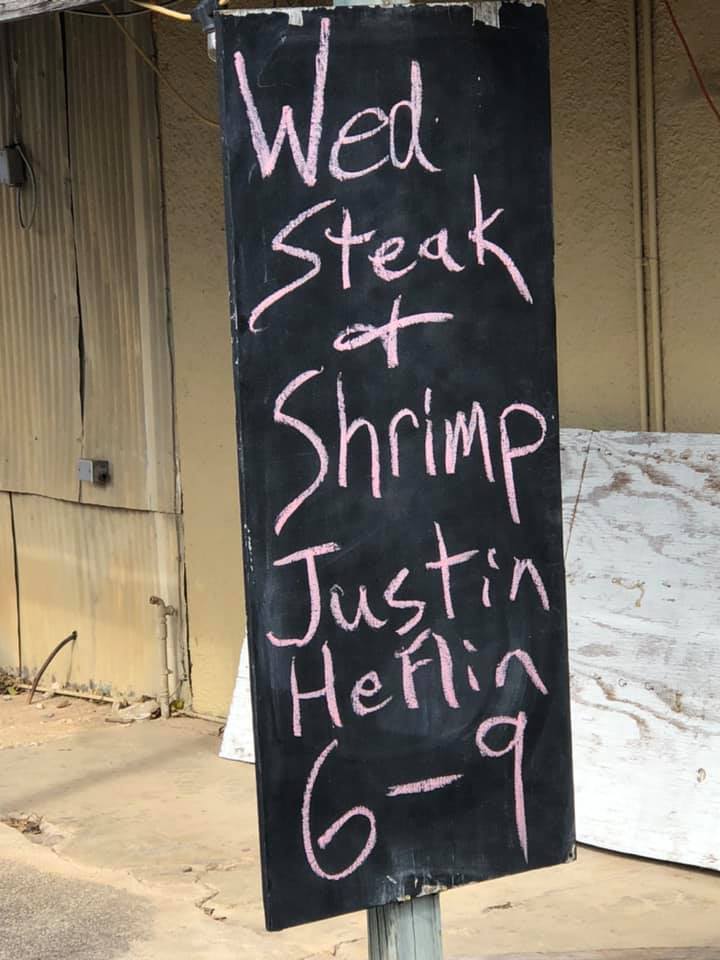 Wed
Steak
+
Shrimp
Justin
Heflin
6-9